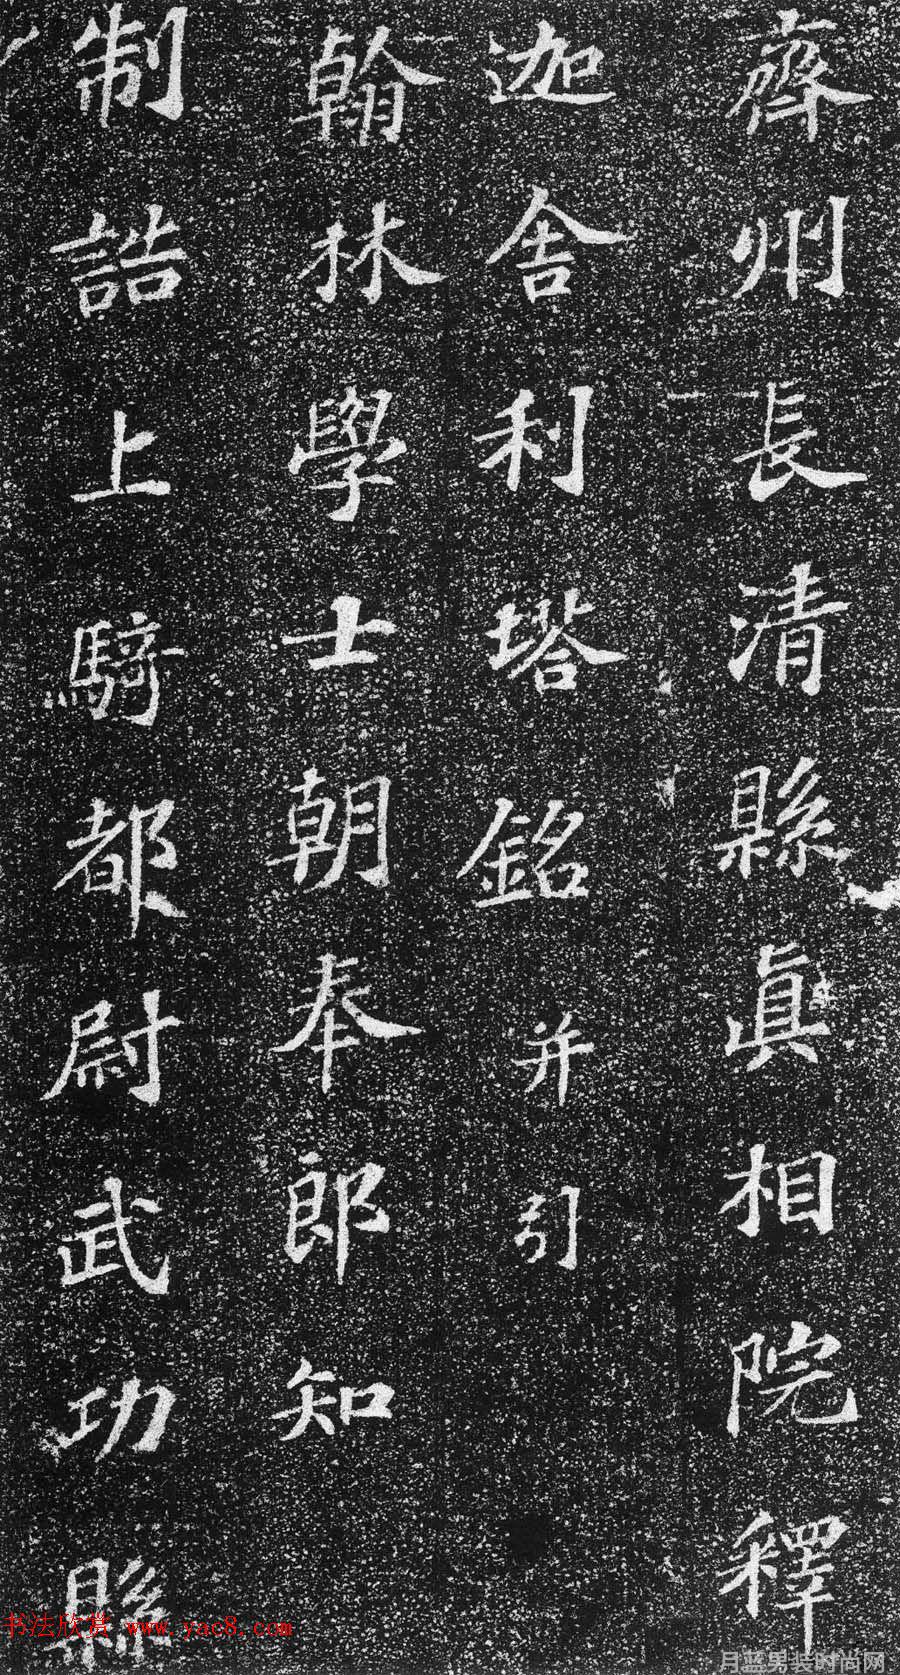 齊州長清縣真相院釋
迦舍利塔銘并引
翰林學士朝奉郎知
制誥上騎都尉武功縣
书法欣赏 www.yac8.com
月蓝男装时尚网